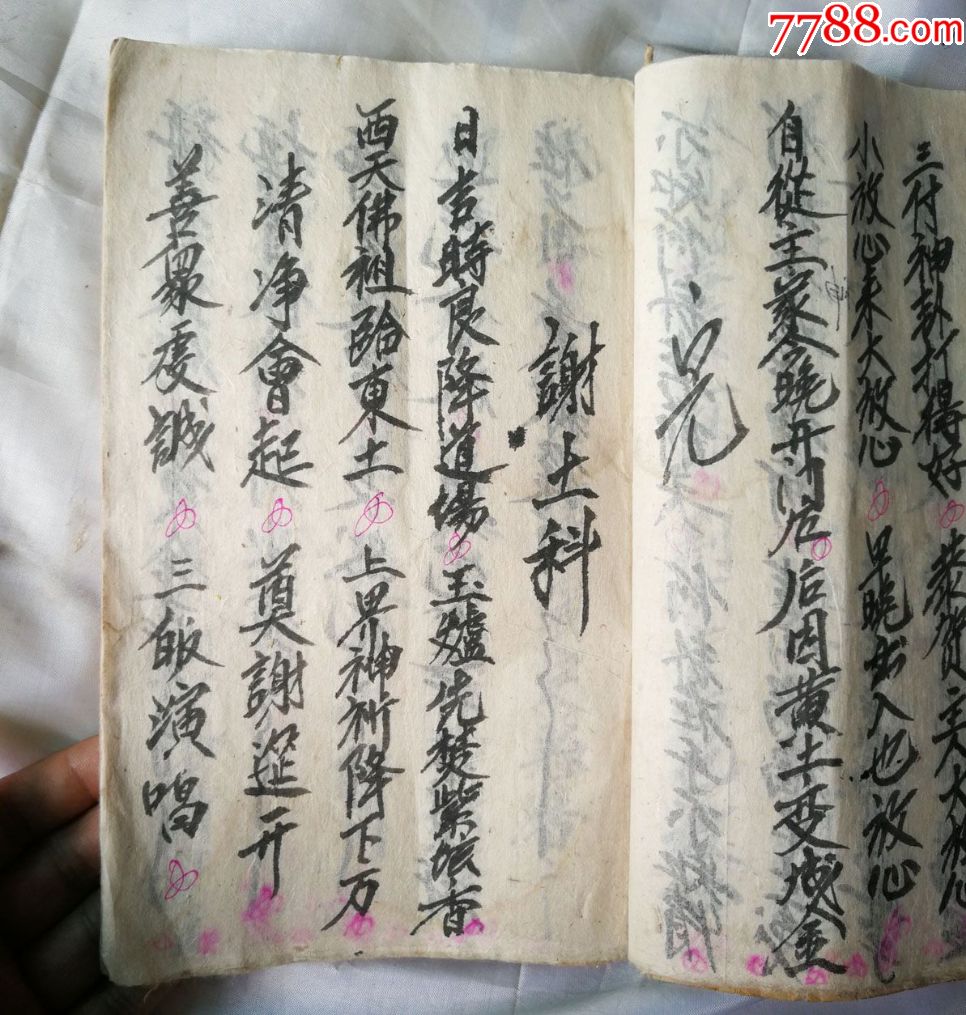 7788.com
三付神卦打得好 恭賀主人大放心
小放心来大放心 早晚出入也放心
自從主蒙今晚开河后 后因黄土变成金
完
謝土科
日吉時良降道場 玉爐先焚紫坛香
西天佛祖臨東土 上界神祈降下方
清净會起 奠謝筵开
善眾虔誠 三皈演唱